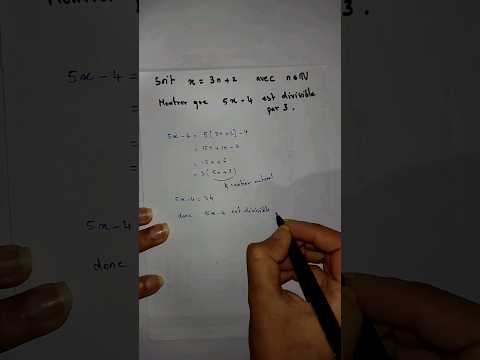 Soit x = 3n+2 avec n ∈ ℕ
Montrer que 5x-4 est divisible
par 3.
5x-4 = 5(3n+2)-4
= 15n+10-4
= 15n+6
= 3(5n+2)
k entier naturel
5x-4 = 3k
donc 5x-4 est divisible
Montrer
5x-4 =
=
=
=
5x-4
donc